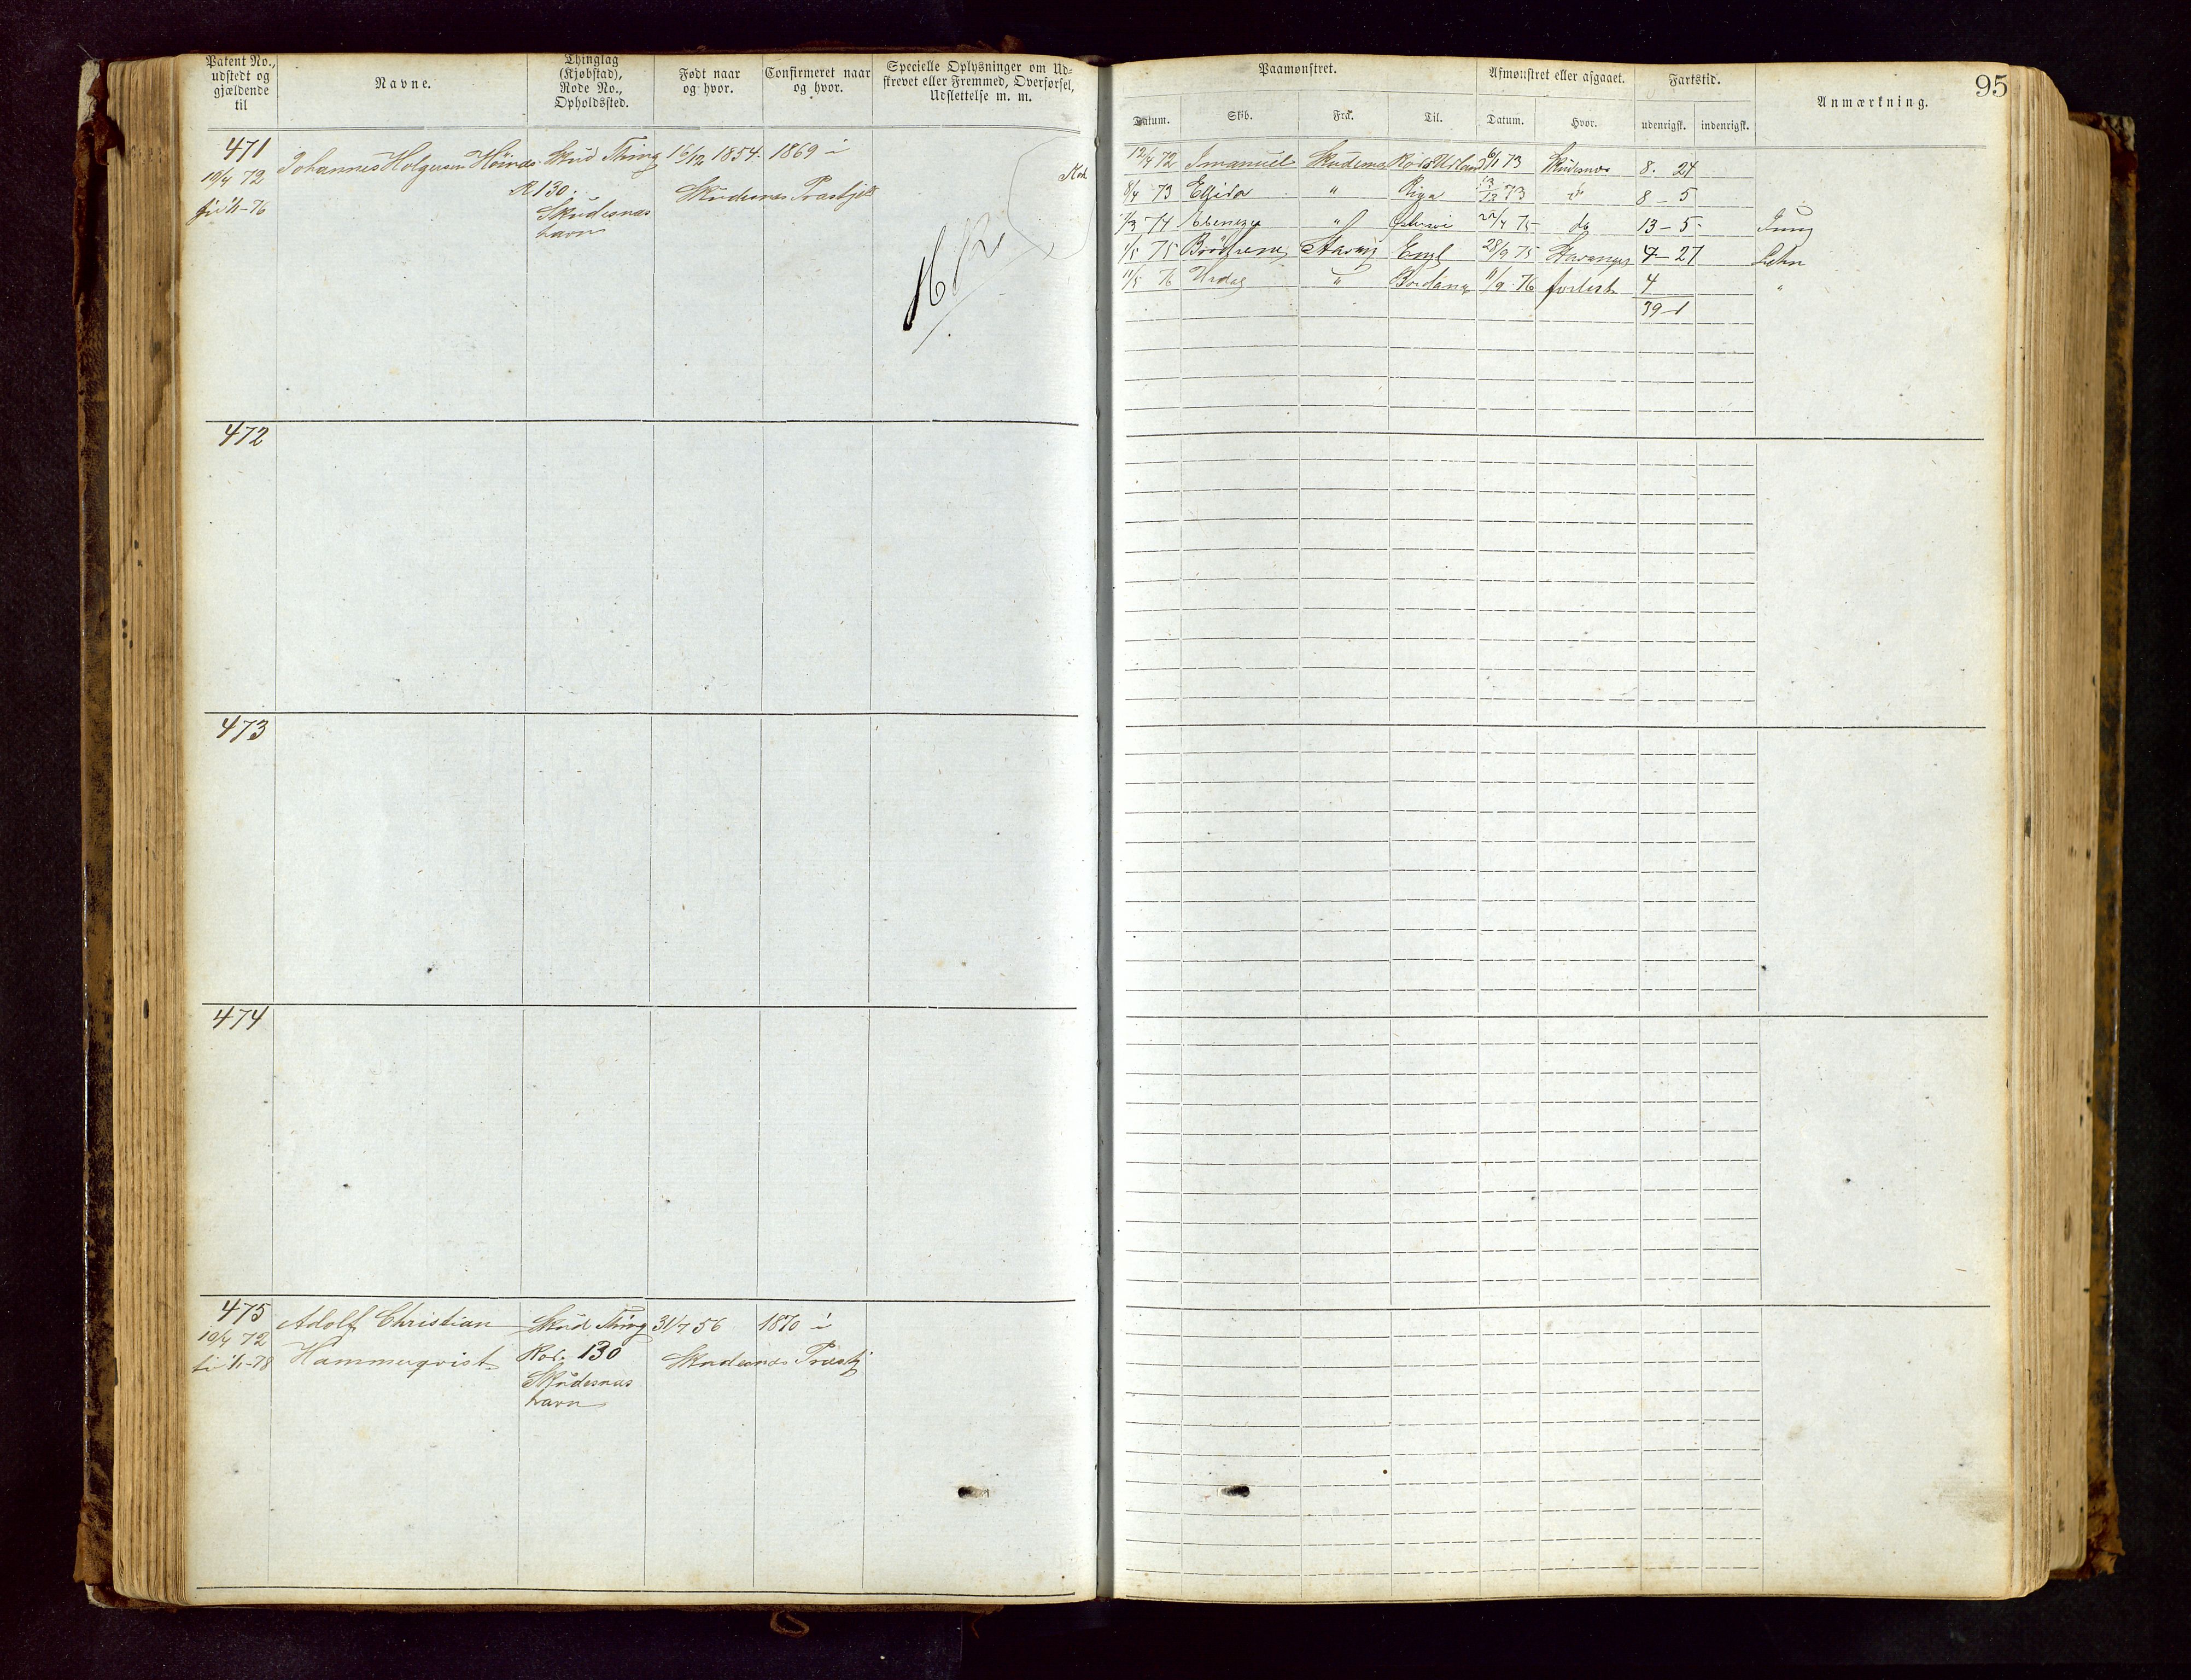 Patent No., udstedt og gjældende til
Navne.
Thinglag (Kjøbstad), Rode No., Opholdssted.
Født naar og hvor.
Confirmeret naar og hvor.
Specielle Oplysninger om Udskrevet eller Fremmed, Overførsel, Udslettelse m. m.
471
10/4 72
til 1/1-76
Johannes Holgersen
Skud Thing
R 130.
Skudesnæs
havn
16/12 1854.
1869 i
Skudesnæs Præstgj
472
473
474
475
10/4 72
til 1/1-78
Adolf Christian
Hammerqvist
Skud Thing
Rod. 130
Skudesnæs
havn
31/7 56
1870 i
Skudesnæs Præstgj
95
Paamønstret.
Afmønstret eller afgaaet.
Fartstid.
Anmærkning.
Datum.
Skib.
Fra.
Til.
Datum.
Hvor.
udenrigsk.
indenrigsk.
12/4 72 Imanuel Skudesnæs 6/1 73 Skudesnæs 8. 24
8/4 73 Ellida " Riga 13/12 73 8-5
74 Ebenezer " 22/4 75 do 13-5- Jung
75 Brödrene Stavang Engl 28/9 75 Stavanger 4-27
11/5 76 " 11/9 76 forlist 4 "
39-1